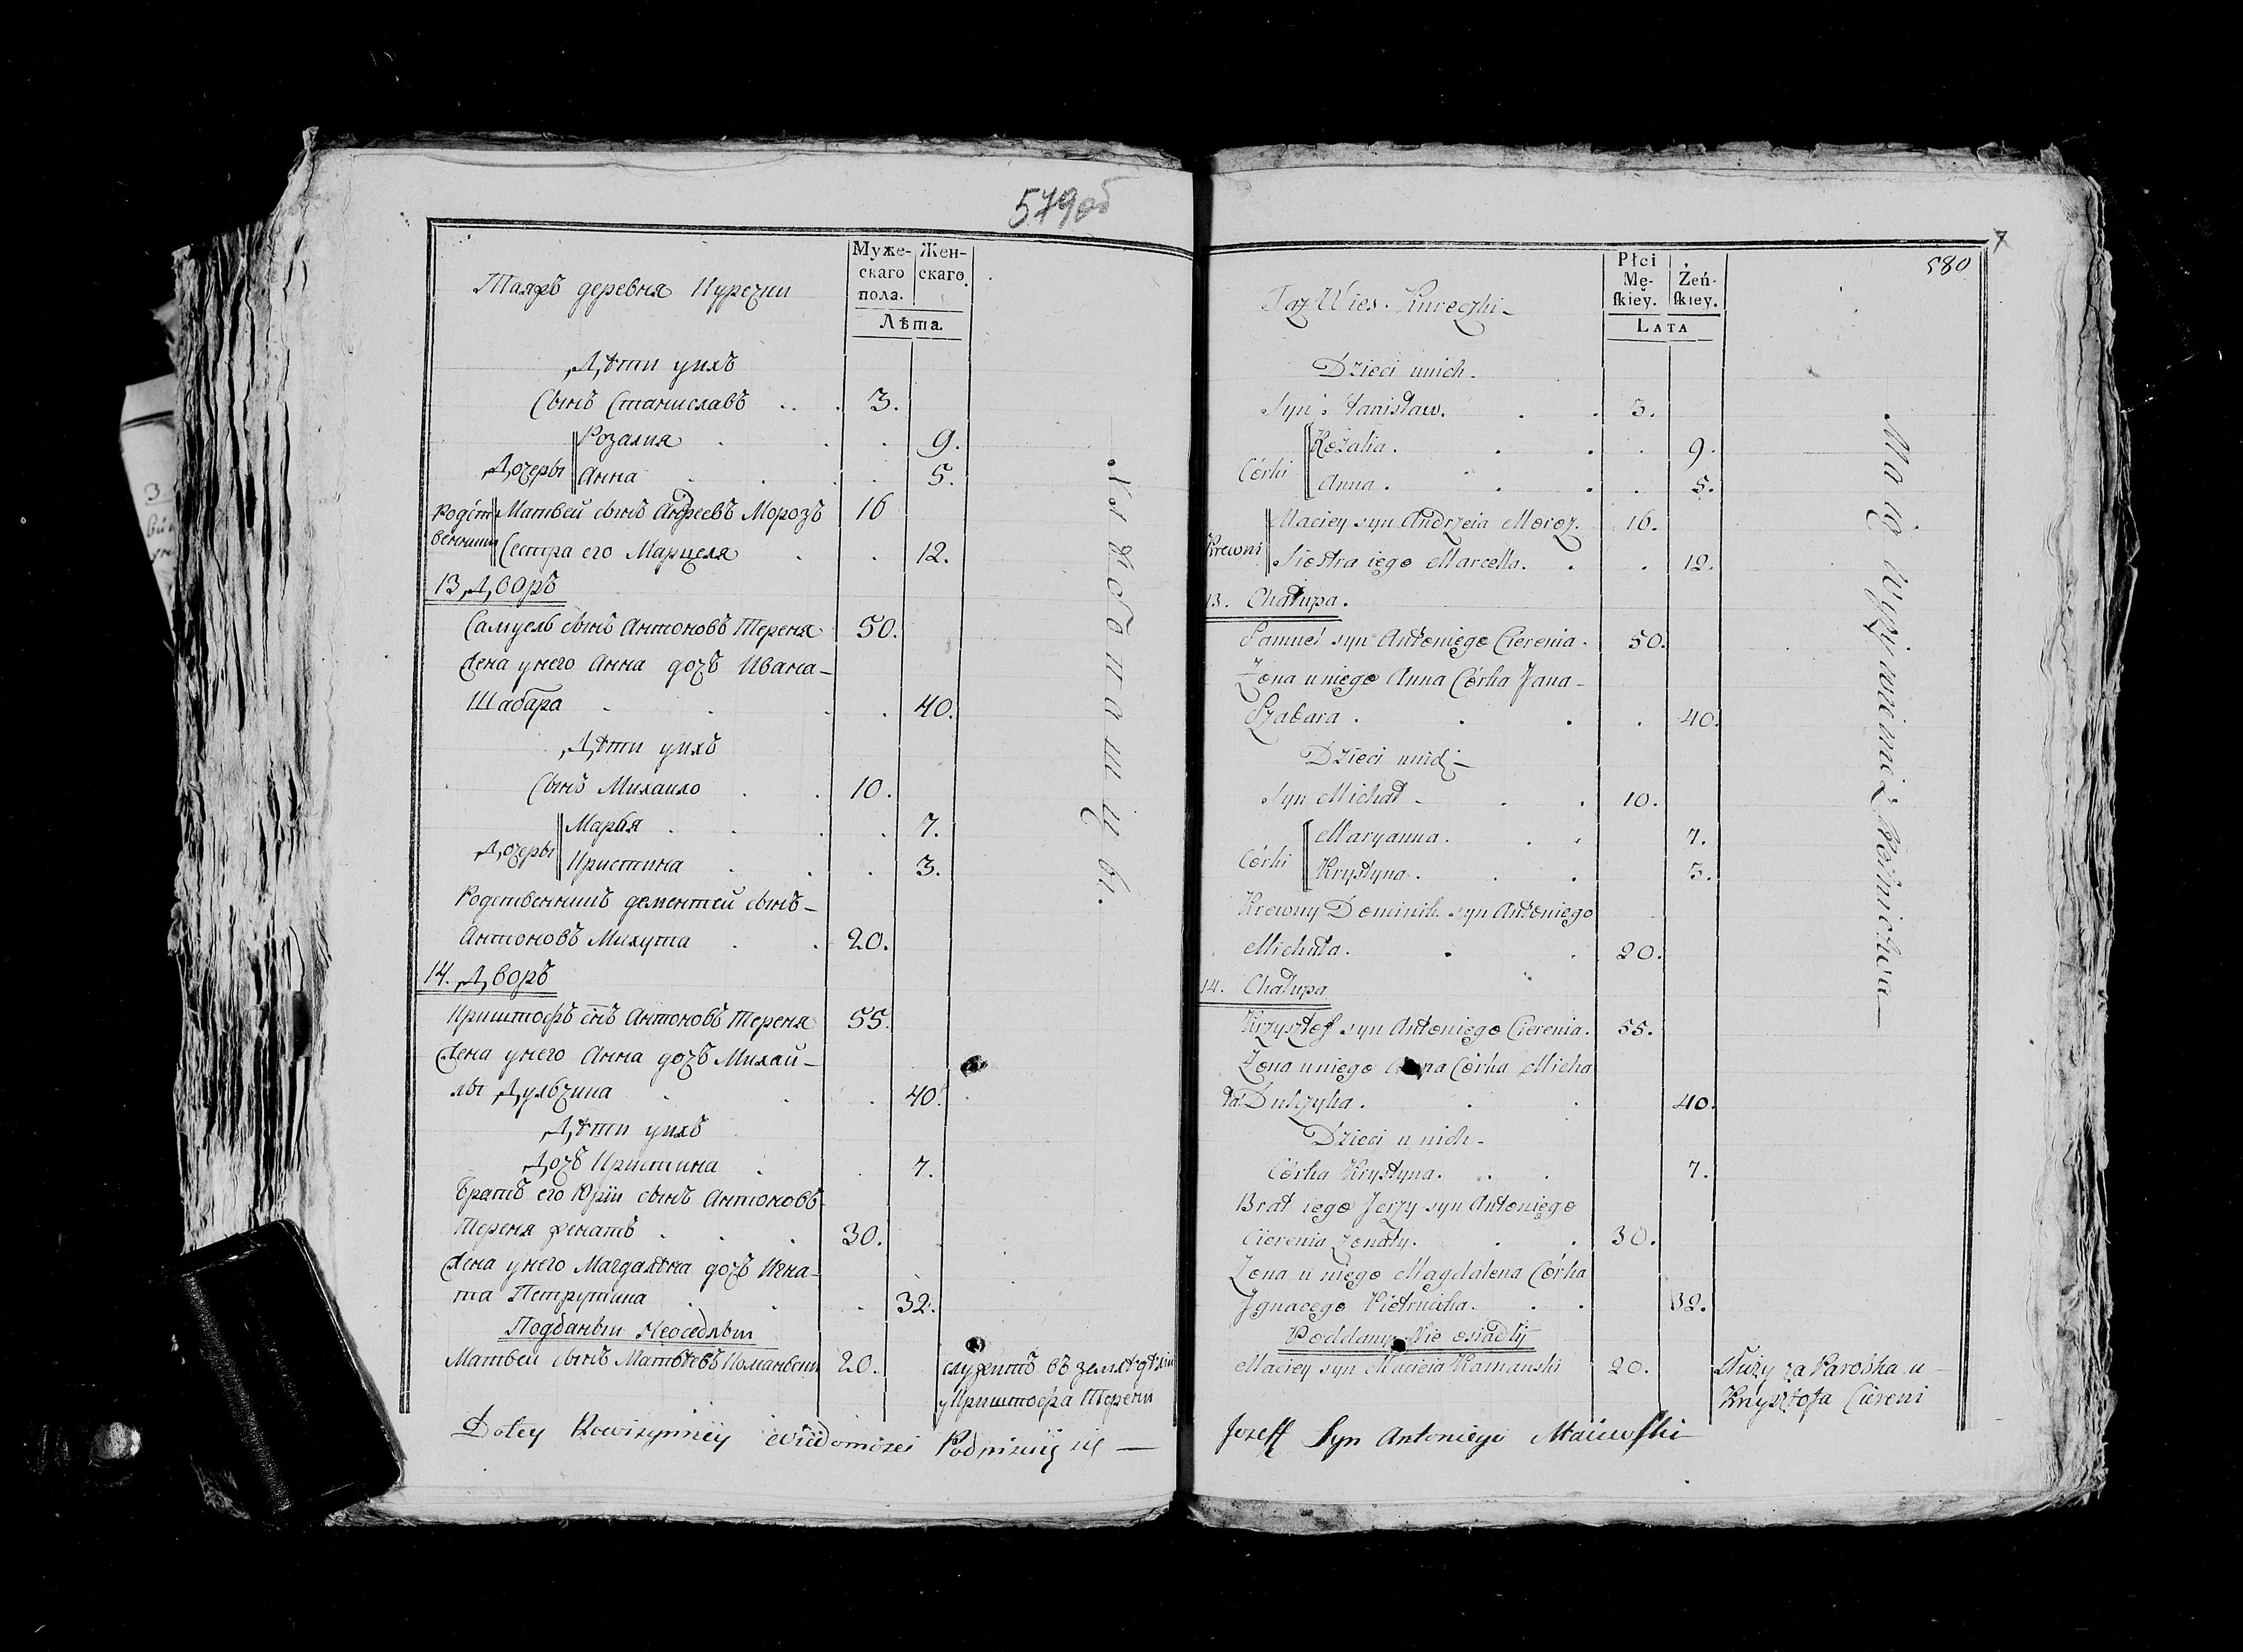 579об
Таяжъ деревня Курочки
Муже- Жен-
скаго скаго.
пола.
Лѣта.
Дѣти уихъ
Сынъ Станиславъ . . . 3.
Розалия . . . 9.
Дочеры
Анна . . . 5.
Родст- Матвей сынъ Андреевъ Морозъ 16
венники Сестра его Марцеля . . 12.
13 Дворъ
Самуель сынъ Антоновъ Тереня 50.
Жена унего Анна дочъ Ивана-
Шабара . . . . 40.
Дѣти уихъ
Сынъ Михаило . . 10.
Марья . . . . 7.
Дочеры
Кристина . . . 3.
Родственникъ дементей сынъ-
Антоновъ Михута . . 20.
14. Дворъ
Криштофъ снъ Антоновъ Тереня 55.
Жена унего Анна дочъ Михай-
лы Дульчика . . . 40.
Дѣти уихъ
Дочъ Кристина . . 7.
Братъ его Юрiи сынъ Антоновъ
Тереня женатъ . . . 30.
Жена унего Магдалѣна дочъ Игна-
та Петрутика . . . 32.
Подданыи Неоседлыи
Матвей сынъ Матвѣевъ Команьски 20. служитъ въ землѣдѣлiи
у Криштофа Терени
Dotey Rewizyiney Wiadomości Podpisuię się —
7
580
Taz Wieś. Kureczki-
Płci
Mę- Żeń-
skiey. skiey.
LATA
Dzieci unich.
Syn Stanisław. . . 3.
Rozalia. . . . 9.
Córki
Anna. . . . 5.
Maciey syn Andrzeia Moroz. 16.
Krewni
Siestra iego Marcella. . . 12.
13. Chałupa.
Samuel syn Antoniego Cierenia. 50.
Żona uniego Anna Córka Jana-
Szabara. . . . 40.
Dzieci unich-
Syn Michał - . . 10.
Maryanna. . . 7.
Córki
Krystyna. . . 3.
Krewny Dominik syn Antoniego
Michuta. . . 20.
14. Chałupa
Krzysztof syn Antoniego Cierenia. 55.
Żona uniego Anna Córka Micha
ła Dulczyka. . . 40.
Dzieci u nich-
Córka Krystyna. . . 7.
Brat iego Jerzy syn Antoniego
Cierenia żonaty. . . 30.
Żona u niego Magdalena Córka
Jgnacego Pietrucika. . . 32.
Poddany Nie osiadły
Maciey syn Macieia Kamanski 20. Służy za Parobka u-
Krzysztofa Ciereni
Jozeff Syn Antoniego